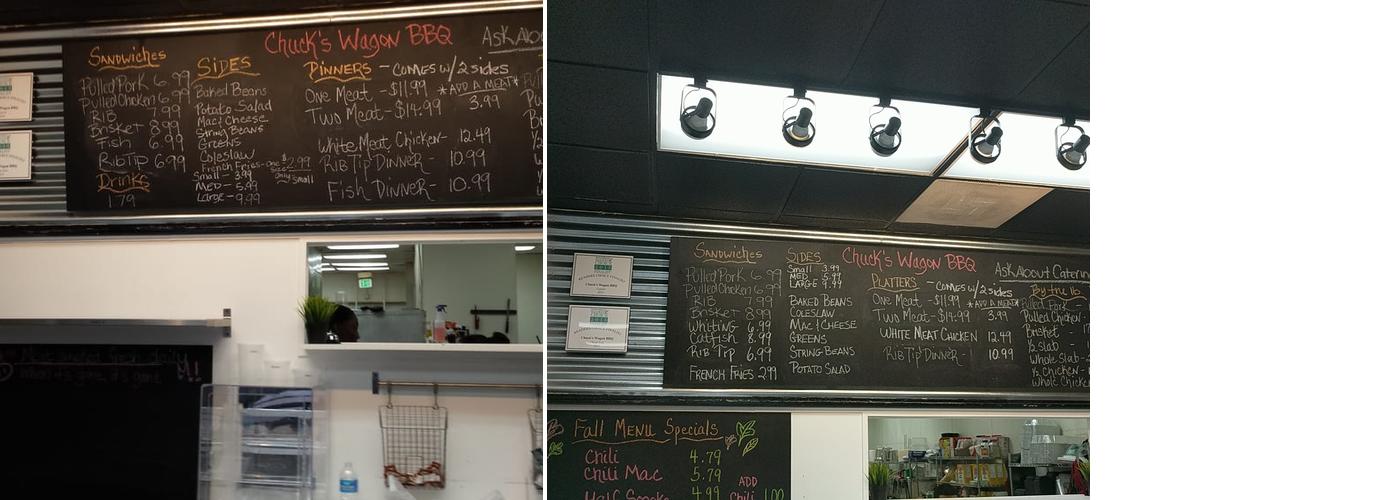 Chuck's Wagon BBQ
Ask Abou
Sandwiches
Pulled Pork 6.99
Pulled Chicken 6.99
RIB 7.99
Brisket 8.99
Fish 6.99
Rib Tip 6.99
Drinks
1.79
SIDES
Baked Beans
Potato Salad
Mac/Cheese
String Beans
Greens
Coleslaw
French Fries - one size only $2.99 small
Small - 3.99
MED - 5.99
Large - 9.99
DINNERS - COMES W/ 2 sides
One Meat - $11.99 *ADD A MEAT*
Two Meat - $14.99 3.99
White Meat Chicken - 12.49
Rib Tip Dinner - 10.99
Fish Dinner - 10.99
when it's gone, it's gone
Chuck's Wagon BBQ
Ask About Caterin
Sandwiches
Pulled Pork 6.99
Pulled Chicken 6.99
RIB 7.99
Brisket 8.99
Whiting 6.99
Catfish 8.99
Rib Tip 6.99
FRENCH FRIES 2.99
SIDES
Small 3.99
MED. 5.99
LARGE 9.99
BAKED BEANS
COLESLAW
MAC/CHEESE
GREENS
STRING BEANS
POTATO SALAD
PLATTERS - COMES W/ 2 sides
One Meat - $11.99 *ADD A MEAT*
Two Meat - $14.99 3.99
WHITE MEAT CHICKEN 12.49
Rib Tip Dinner - 10.99
By the lb
Pulled Pork
Pulled Chicken -
Brisket - 1
½ slab -
Whole Slab -
½ Chicken -
Whole Chicke
Fall MENU Specials
Chili 4.79
Chili Mac 5.79
Half Smoke 4.99
ADD
Chili 1.00